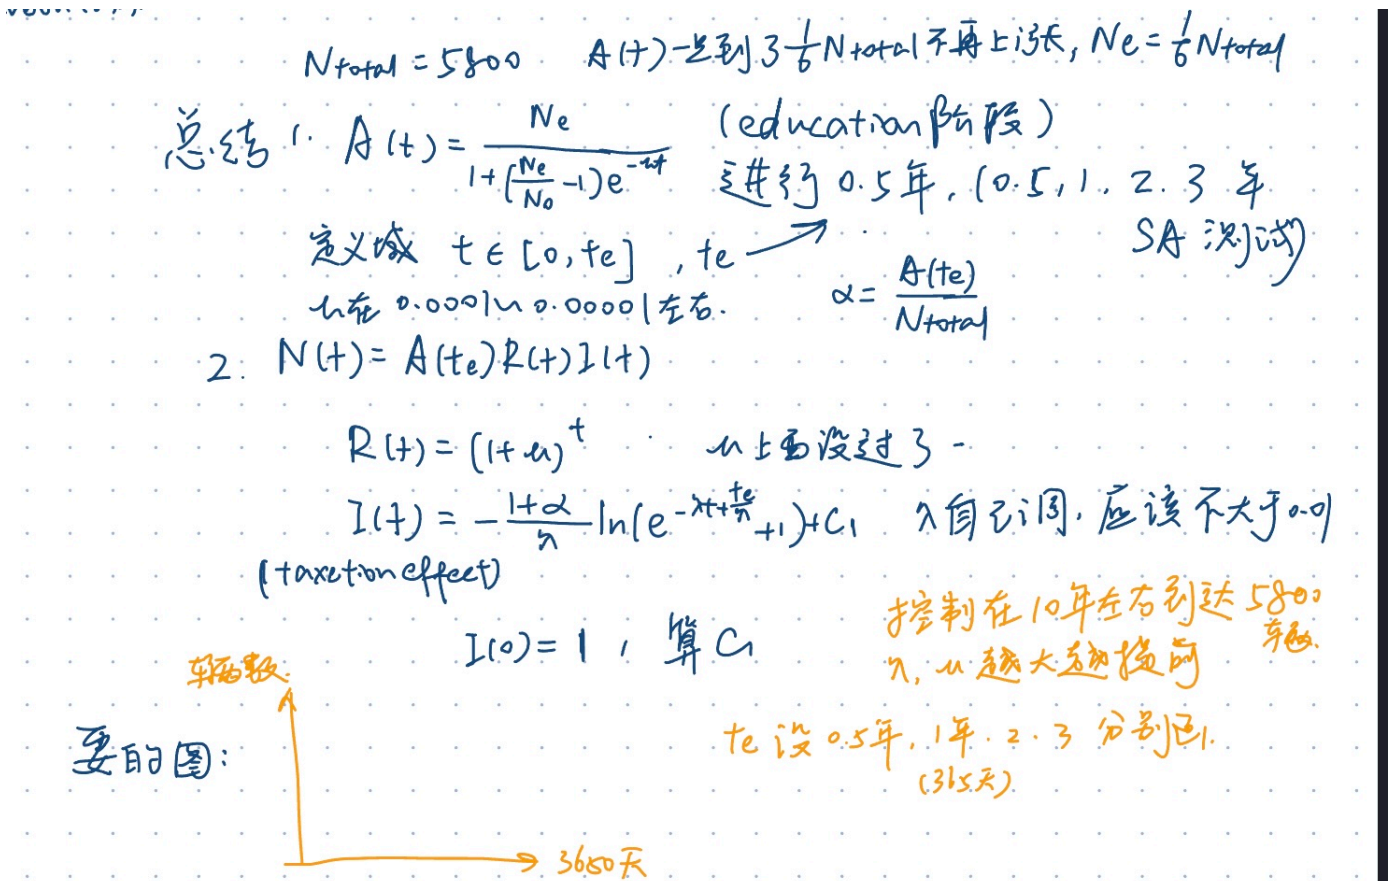 Ntotal = 5800 A(t)一旦到了 1/6 Ntotal 不再上涨, Ne = 1/6 Ntotal
总结 1. A(t) = Ne / (1+(Ne/N0 -1)e^-ut) (education阶段)
进行 0.5年, (0.5, 1, 2. 3 年
SA 测试)
定义域 t ∈ [0, te] , te
u在 0.0001~0.00001左右. α = A(te) / Ntotal
2. N(t) = A(te)R(t)I(t)
R(t) = (1+u)^t u上面设过了
I(t) = - (1+α)/λ ln(e^(-λt+te/λ) +1)+C1 λ自己调, 应该不大于0.01
(taxetion effect)
I(0) = 1 , 算C1
控制在10年左右到达5800
车辆.
λ, u 越大越提前
te 设 0.5年, 1年. 2. 3 分别画.
(365天)
要的图:
车辆数
3650天